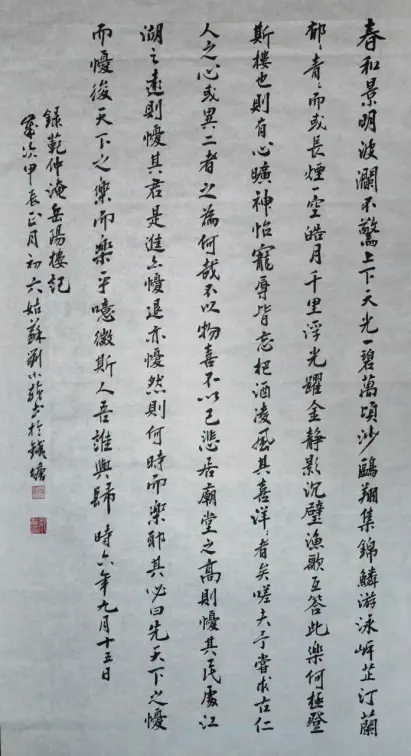 春和景明波瀾不驚上下天光一碧萬頃沙鷗翔集錦鱗游泳岸芷汀蘭
郁々青々而或長煙一空皓月千里浮光耀金静影沉璧漁歌互答此樂何極登
斯樓也則有心曠神怡寵辱皆忘把酒凌風其喜洋々者矣嗟夫予嘗求古仁
人之心或異二者之為何哉不以物喜不以己悲居廟堂之高則憂其民處江
湖之遠則憂其君是進亦憂退亦憂然則何時而樂耶其必曰先天下之憂
而憂後天下之樂而樂乎噫微斯人吾誰與歸 時六年九月十五日
錄范仲淹岳陽樓記
歲次甲辰正月初六姑蘇劉小 書於錢塘